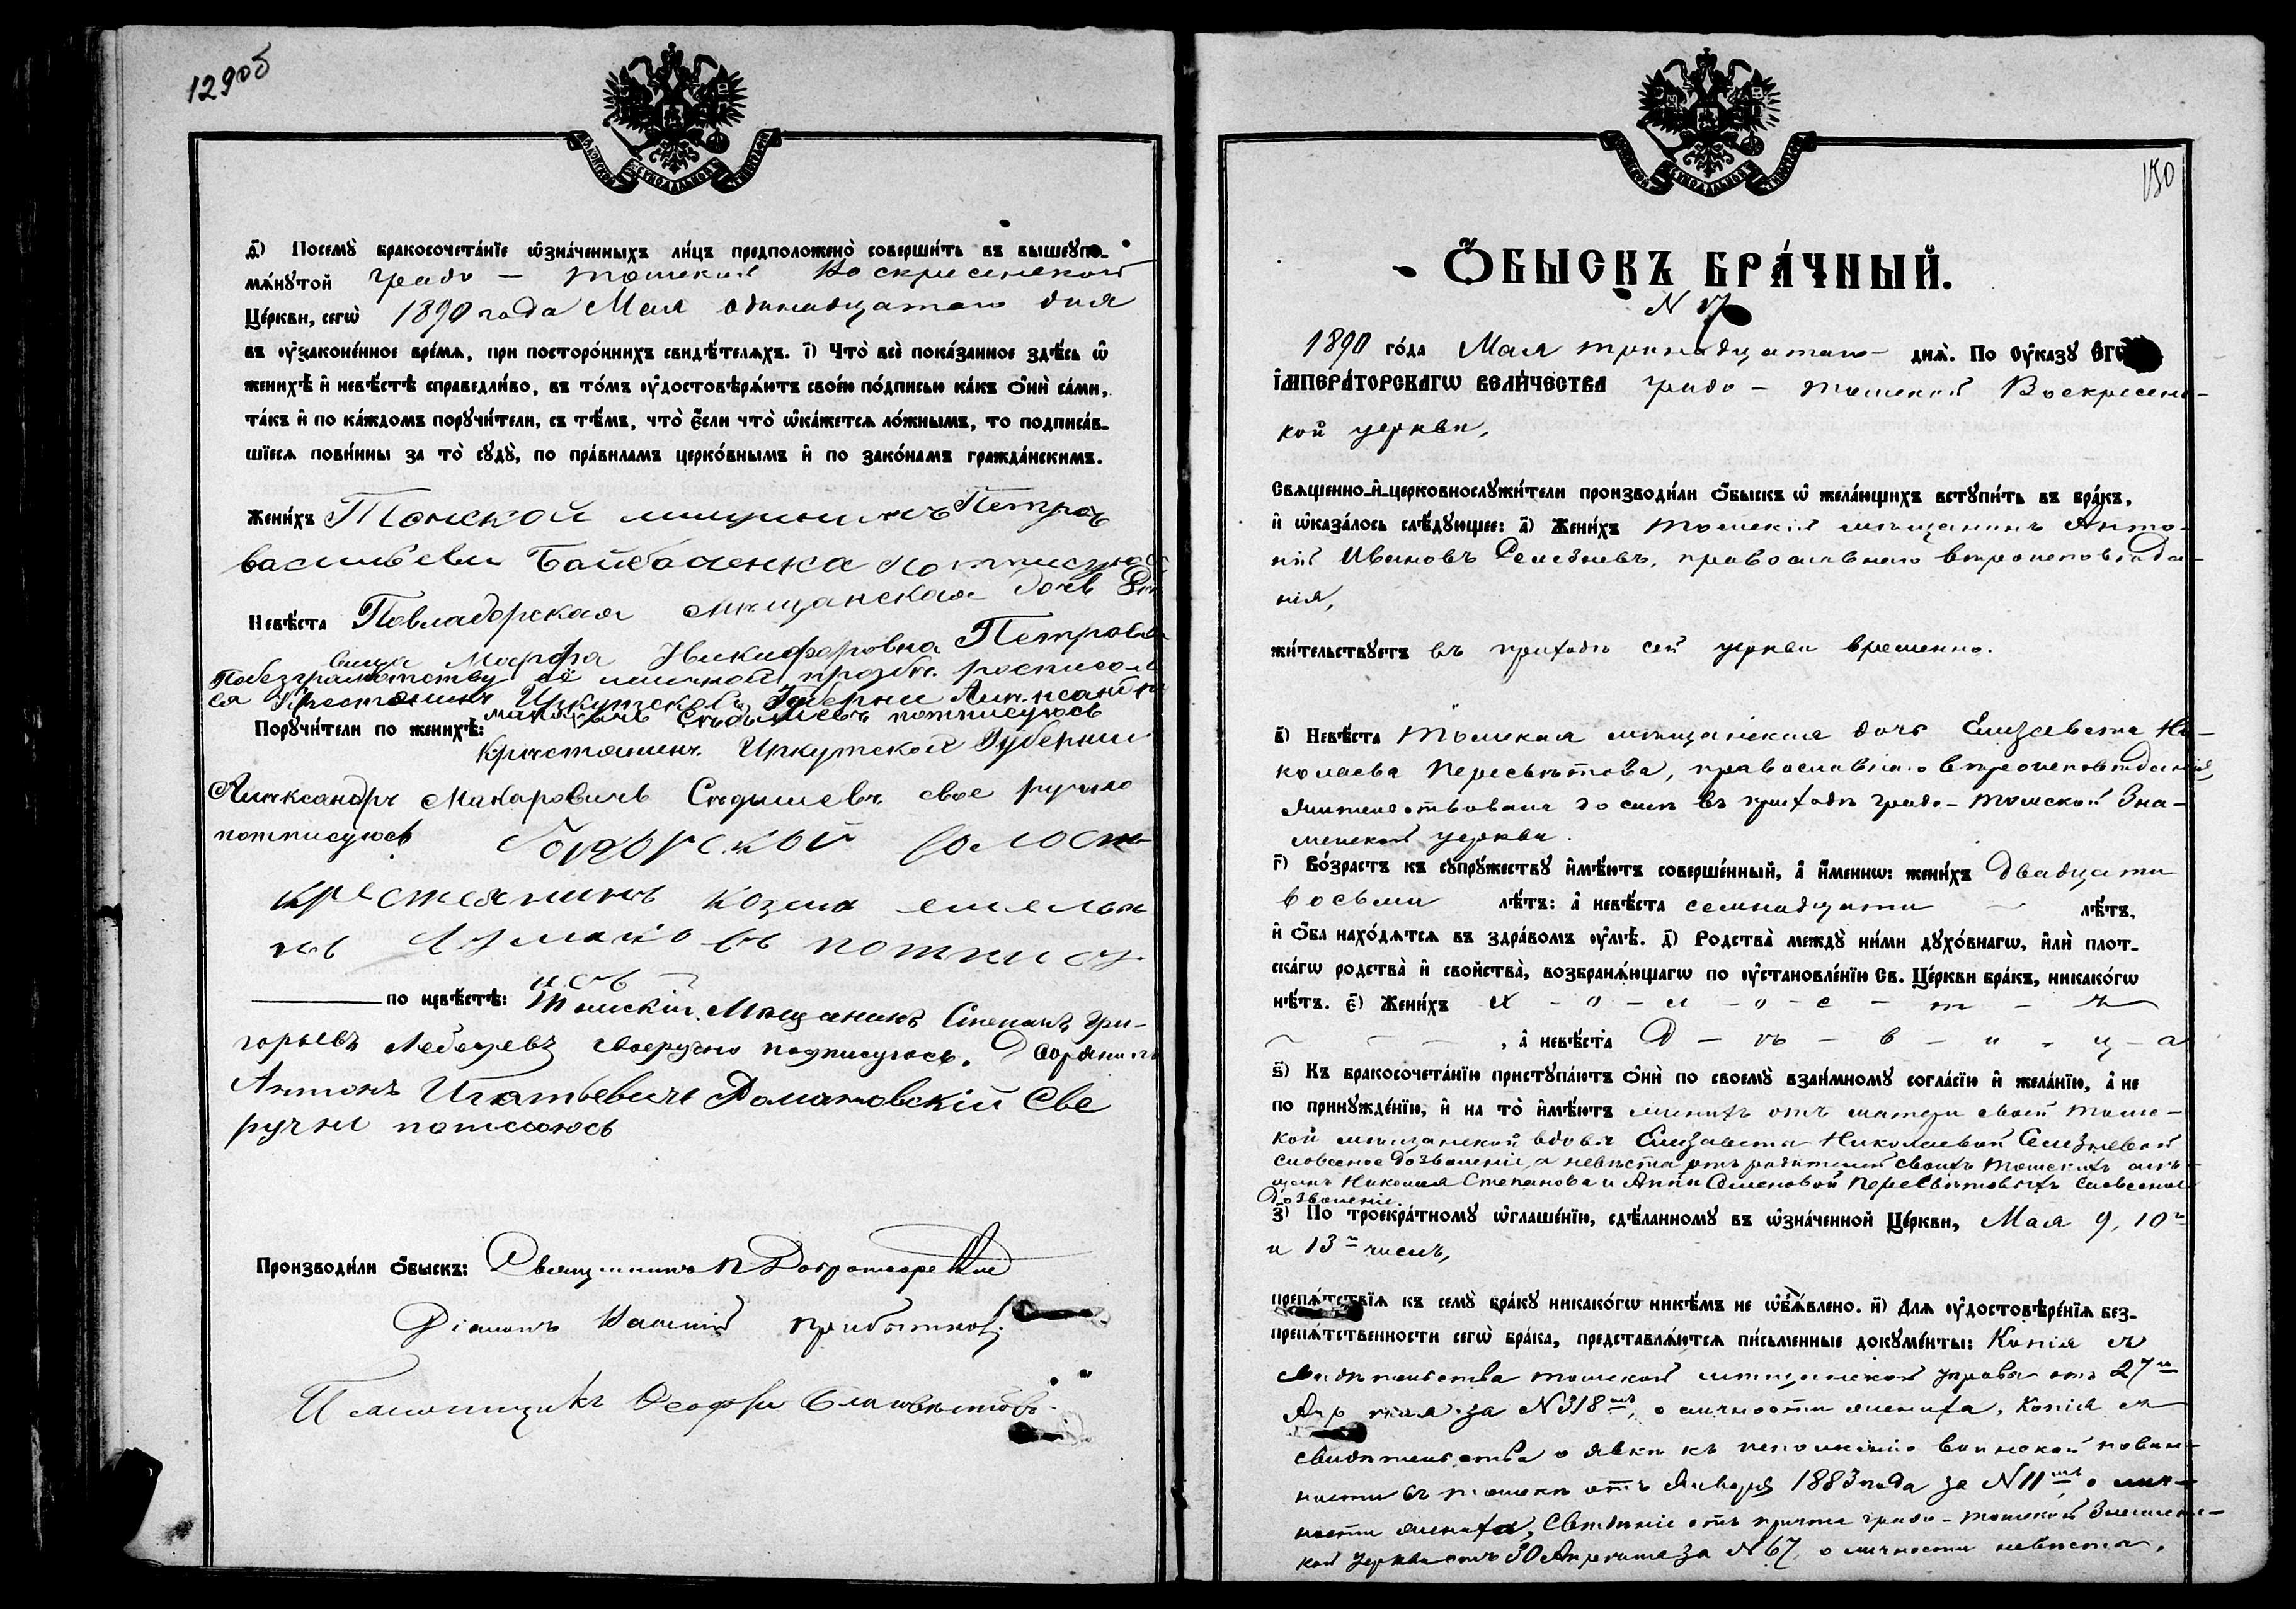 129об
МОСКОВСКОЙ СѴНОДАЛЬНОЙ ТИПОГРАФІИ
д҃) Посемꙋ̀ бракосочета́нїе ѡ҆зна́ченныхъ ли́цъ предположено̀ соверши́ть въ вышеꙋпо-
мѧ́нꙋтой градо - Томской Воскресенской
Це́ркви, сегѡ̀ 1890 года Мая одинадцатаго дня
въ ᲂу҆законе́нное вре́мѧ, при посторо́ннихъ свидѣ́телѧхъ. і҃) Что̀ всѐ пока́занное здѣ́сь ѡ҆
женихѣ̀ и҆ невѣ́стѣ справедли́во, въ то́мъ ᲂу҆достовѣрѧ́ютъ свое́ю по́дписью ка́къ ѻ҆нѝ са́ми,
та́къ и҆ по ка́ждомъ порꙋчи́тели, съ тѣ́мъ, что̀ є҆́сли что̀ ѡ҆ка́жетсѧ ло́жнымъ, то подписа́в-
шїесѧ пови́нны за то̀ сꙋдꙋ̀, по пра́виламъ церко́внымъ и҆ по зако́намъ гражда́нскимъ.
Жени́хъ Томской мищининъ Петръ
васильеви Байбаченка потписуюс
Невѣ́ста Повладорская Мищанская дочь
вица Марфа Никифоровна Петрова
Побезграмотству её личной прозбе росписол
ся Крестянинъ Иркутской Губерни Александръ
Порꙋчи́тели по женихѣ̀: макаровичъ Седышевъ потписуюсь
Крестянинъ Иркутской Губернии
Александръ Макаровичъ Седышевъ свое ручно
потписуюсь волости
крестеянинъ козма емелья
новъ потпису
юсь
по невѣ́стѣ: Томскій Мещанинъ Степанъ Гри-
горьевъ Лебедевъ своеручно подписуюсь. Дворянинъ
Антонъ Игнатьевичъ Романовскій Све
ручне потсююсь
Производи́ли ѻ҆́быскъ: Священникъ П Добротворскій
Діаконъ Василій Прибытковъ
Псаломщикъ
150
МОСКОВСКОЙ СѴНОДАЛЬНОЙ ТИПОГРАФІИ
Ѻ҆́БЫСКЪ БРА́ЧНЫЙ.
N 17
1890 го́да Мая тринадцатаго - днѧ̀. По Оу҆ка́зꙋ Є҆Гѡ̀
І҆МПЕРА́ТОРСКАГѠ ВЕЛИ́ЧЕСТВА градо - Томской Воскресенс-
кой церкви,
Свѧще́нно-и҆-церковнослꙋжи́тели производи́ли ѻ҆́быскъ ѡ҆ жела́ющихъ встꙋпи́ть въ бра́къ,
и҆ ѡ҆каза́лось слѣ́дꙋющее: а҃) Жени́хъ Томскій мѣщанинъ Анто-
ній Ивановъ Селезневъ, православнаго вѣроисповѣда-
нія,
жи́тельствꙋетъ въ приходѣ сей церкви временно.
в҃) Невѣ́ста Томская мѣщанская дочь Елизавета Ни-
колаева Пересвѣтова, православнаго вѣроисповѣданія,
жительствовала до сихъ въ приходѣ градо - Томской Зна-
менской церкви.
г҃) Во́зрастъ къ сꙋпрꙋ́жествꙋ и҆мѣ́ютъ соверше́нный, а҆ и҆́меннѡ: жени́хъ Двадцати
восьми лѣ́тъ: а҆ невѣ́ста семнадцати лѣ́тъ,
и҆ ѻ҆́ба нахо́дѧтсѧ въ здра́вомъ ᲂу҆мѣ̀. д҃) Родства̀ междꙋ̀ ни́ми дꙋхо́внагѡ, и҆лѝ плот-
ска́гѡ родства̀ и҆ сво́йства̀, возбранѧ́ющагѡ по ᲂу҆становле́нїю Св. Це́ркви бра́къ, никако́гѡ
нѣ́тъ. є҃) Жени́хъ х - о - л - о - с - т - ъ
, а҆ невѣ́ста д - ѣ - в - и - ц - а
ѕ҃) Къ бракосочета́нїю пристꙋпа́ютъ ѻ҆нѝ по своемꙋ̀ взаи́мномꙋ согла́сїю и҆ жела́нїю, а҆ не
по принꙋжде́нїю, и҆ на то̀ и҆мѣ́ютъ женихъ отъ матери своей томс-
кой мѣщанской вдовы Елизавета Николаевой Селезневой
словесное дозволеніе, а невѣста отъ родителей своихъ томскихъ мѣ-
щанъ Николая Степанова и Анны Семеновой Пересвѣтовыхъ словесное
дозволеніе.
з҃) По троекра́тномꙋ ѡ҆глаше́нїю, сдѣ́ланномꙋ въ ѡ҆зна́ченной Це́ркви, Мая 9, 10го
и 13го чиселъ,
препѧ́тствїѧ къ семꙋ̀ бра́кꙋ никако́гѡ никѣ́мъ не ѡ҆б̾ѧ́влено. и҃) Длѧ ᲂу҆достовѣре́нїѧ без-
препѧ́тственности сегѡ̀ бра́ка, представлѧ́ютсѧ пи́сьменные докꙋме́нты: Копія съ
свидѣтельства томской мѣщанской управы отъ 27го
Апрѣля за N 318мъ, о личности жениха, Копія съ
свидѣтельства о явкѣ къ исполненію воинской повин-
ности въ томскѣ отъ Января 1883 года за N 11мъ о лич-
ности жениха, Свѣдѣніе отъ причта градо - томской Знаменс-
кой церкви отъ 30 Апрѣля за N 67, о личности невѣсты,